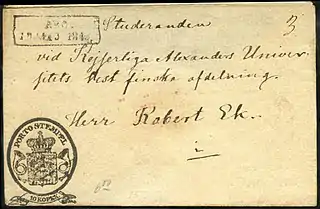 ÅBO.
Studeranden
3
vid Kejserliga Alexanders Univer-
sitets Vest finska afdelning.
Herr Robert Ek.
i
PORTO STEMPEL
10 KOPEK